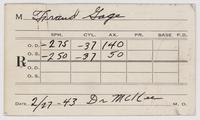 M Gage
SPH. CYL. AX. PR. BASE P.D.
O. D. -275 -37 140
O. S. -250 -37 50
R
O. D.
O. S.
Date, 2/27-43 Dr McKee M. D.